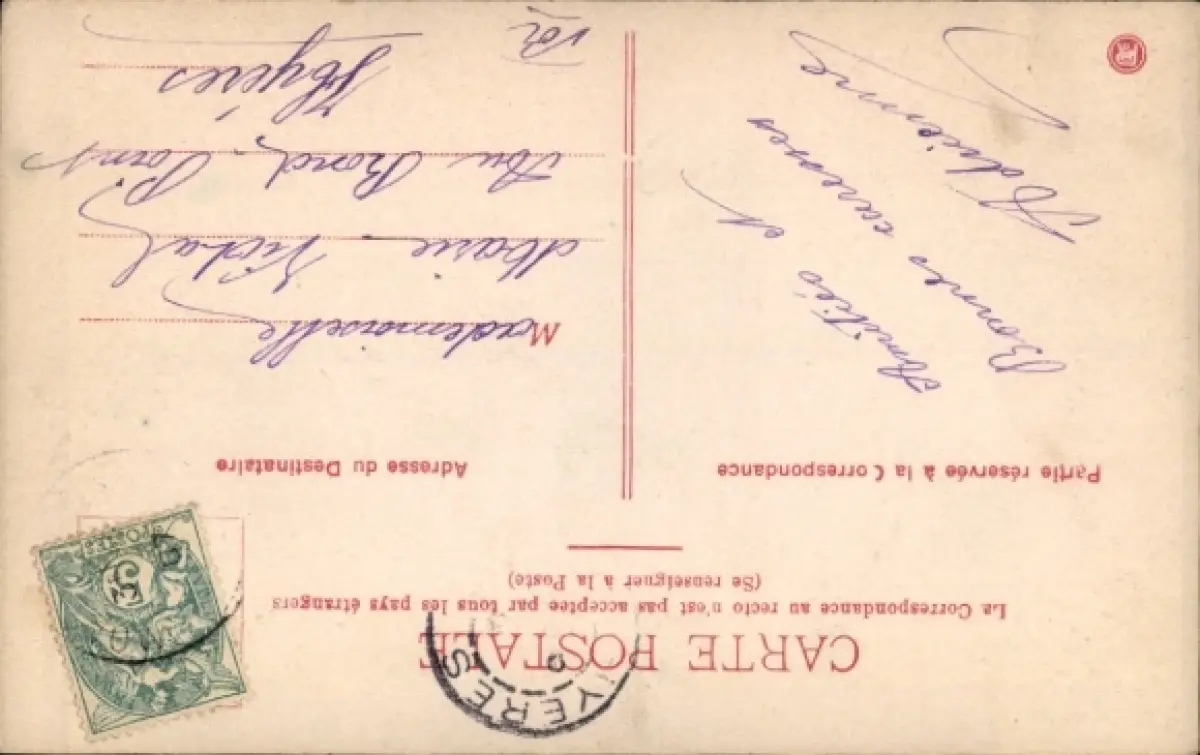 CARTE POSTALE
La Correspondance au recto n'est pas acceptée par tous les pays étrangers
(Se renseigner à la Poste)
Partie réservée à la Correspondance
Amitiés et
Bonnes caresses
Adrienne
Adresse du Destinataire
Mademoiselle
Marie Vidal
Au Rond
Hyères
Var
YERES
POSTES